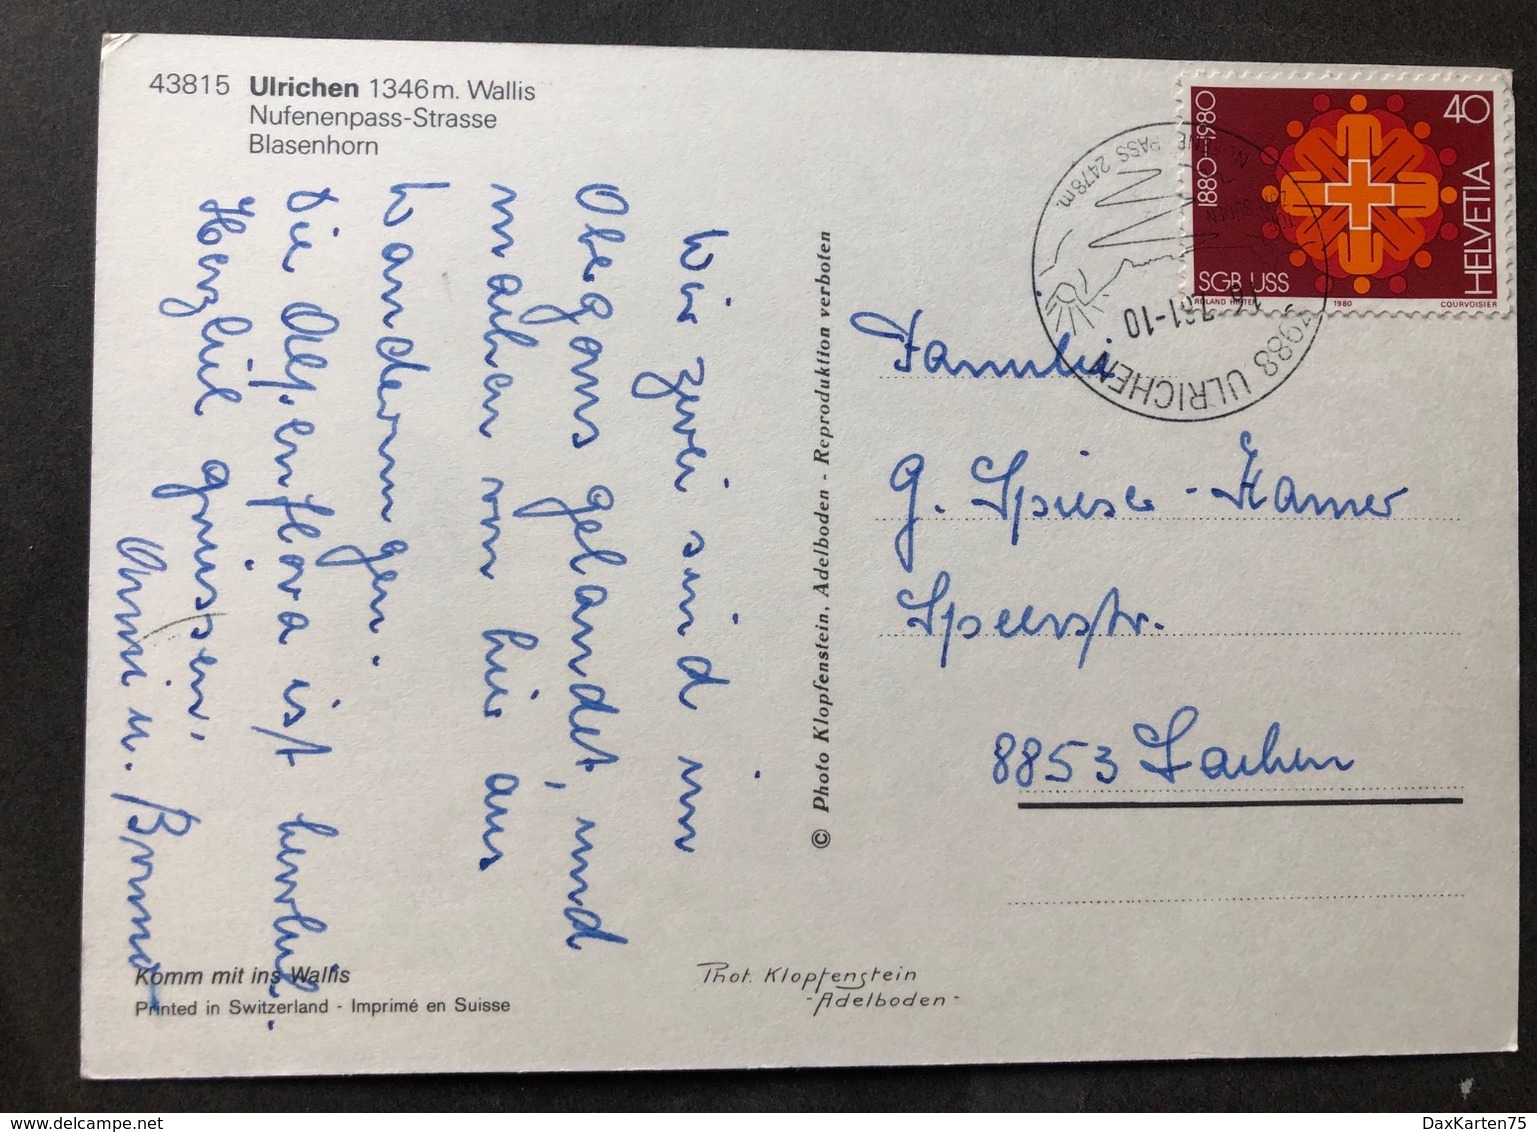 43815 Ulrichen 1346m. Wallis
Nufenenpass-Strasse
Blasenhorn
Wir zwei sind im
Obergoms gelandet, und
machen von hier aus
Wanderungen.
Die Alpenflora ist herrlich.
Herzlich grüssen,
Anni u. Bruno
Komm mit ins Wallis
Printed in Switzerland - Imprimé en Suisse
© Photo Klopfenstein, Adelboden - Reproduktion verboten
Phot. Klopfenstein
- Adelboden -
1880-1980
40
HELVETIA
SGB USS
ROLAND HIRTER 1980 COURVOISIER
PASS 2478m.
81-10
3988 ULRICHEN
Familie
G. Spiess-Hamer
Speerstr.
8853 Lachen
DaxKarten75